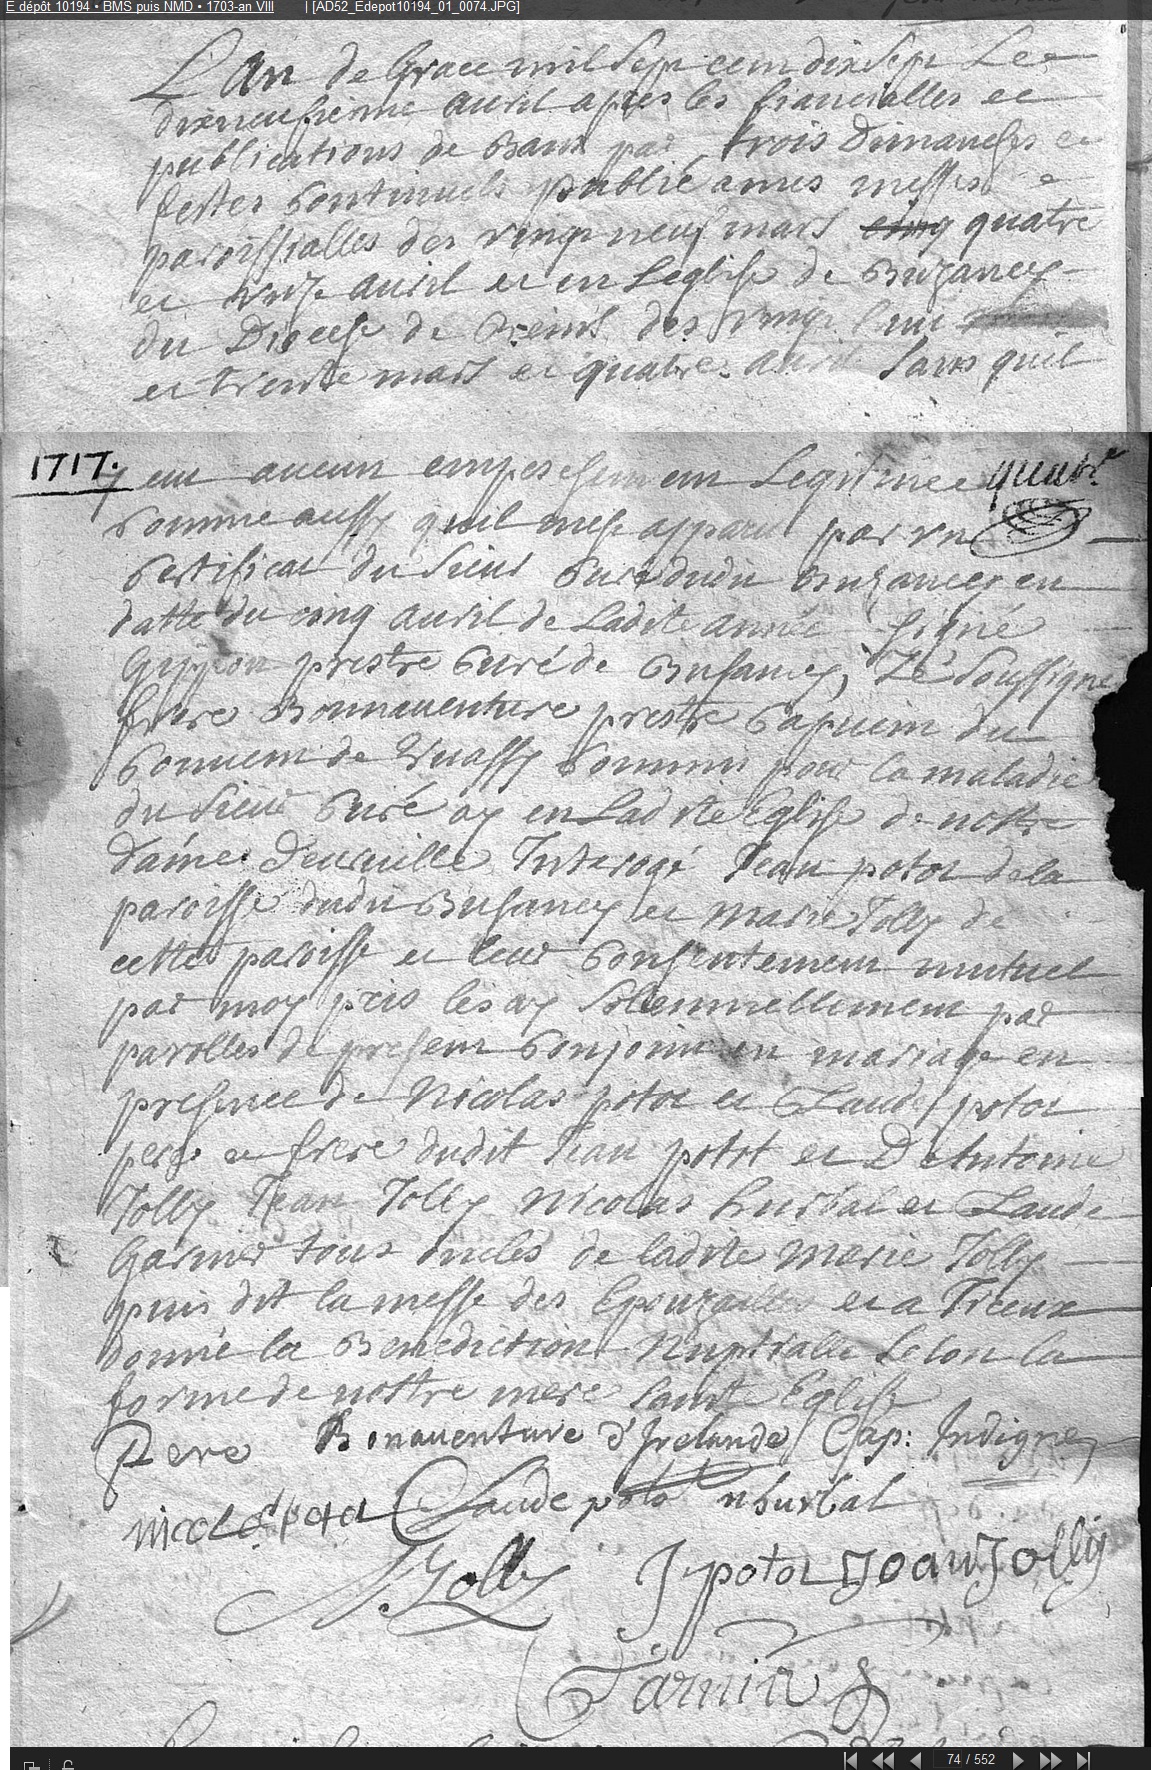 E dépôt 10194 • BMS puis NMD • 1703-an VIII | [AD52_Edepot10194_01_0074.JPG]
L'An de Grace mil Sept cent dix Sept Le
dixneufieme auril apres les fiancialles et
publications de bans par trois Dimanches et
festes Continuels publié a nos messes
paroissialles des vingt neuf mars cinq quatre
et onze auril et en Leglise de Buzancy
du Diocese de Reims des vingt huit
et trente mars et quatre auril sans quil
1717.
y eut aucun empeschement Legitime
Comme aussy quil mest apparu par vn
Certificat du Sieur Curé dudit Buzancy en
datte du cinq auril de Ladite année Signé
prestre Curé de Busancy, Je Soussigné
frere Bonnauenture prestre Capucin du
Conuent de Wassy Commis pour la maladie
du Sieur Curé ay en Ladite Eglise de nostre
dame Interogé Jean potot de la
paroisse dudit Busancy et Marie Jolly de
cette paroisse et leur Consentement mutuel
par moy pris les ay Solemnellement par
parolles de present Conjoint en mariage en
presence de Nicolas potot et Claude potot
pere et frere dudit Jean potot et D'Antoine
Jolly Jean Jolly Nicolas hurbal et Claude
Garnier tous oncles de ladite Marie Jolly
puis dit la messe des Epouzailles et a Iceux
donné la Benediction Nuptialle Selon la
forme de nostre mere Sainte Eglise
Pere Bonauenture d'Irelande Cap: Indigne
nicolas potot Claude potot n hurbal
A. Jolly J potot Jean Jolly
74 / 552